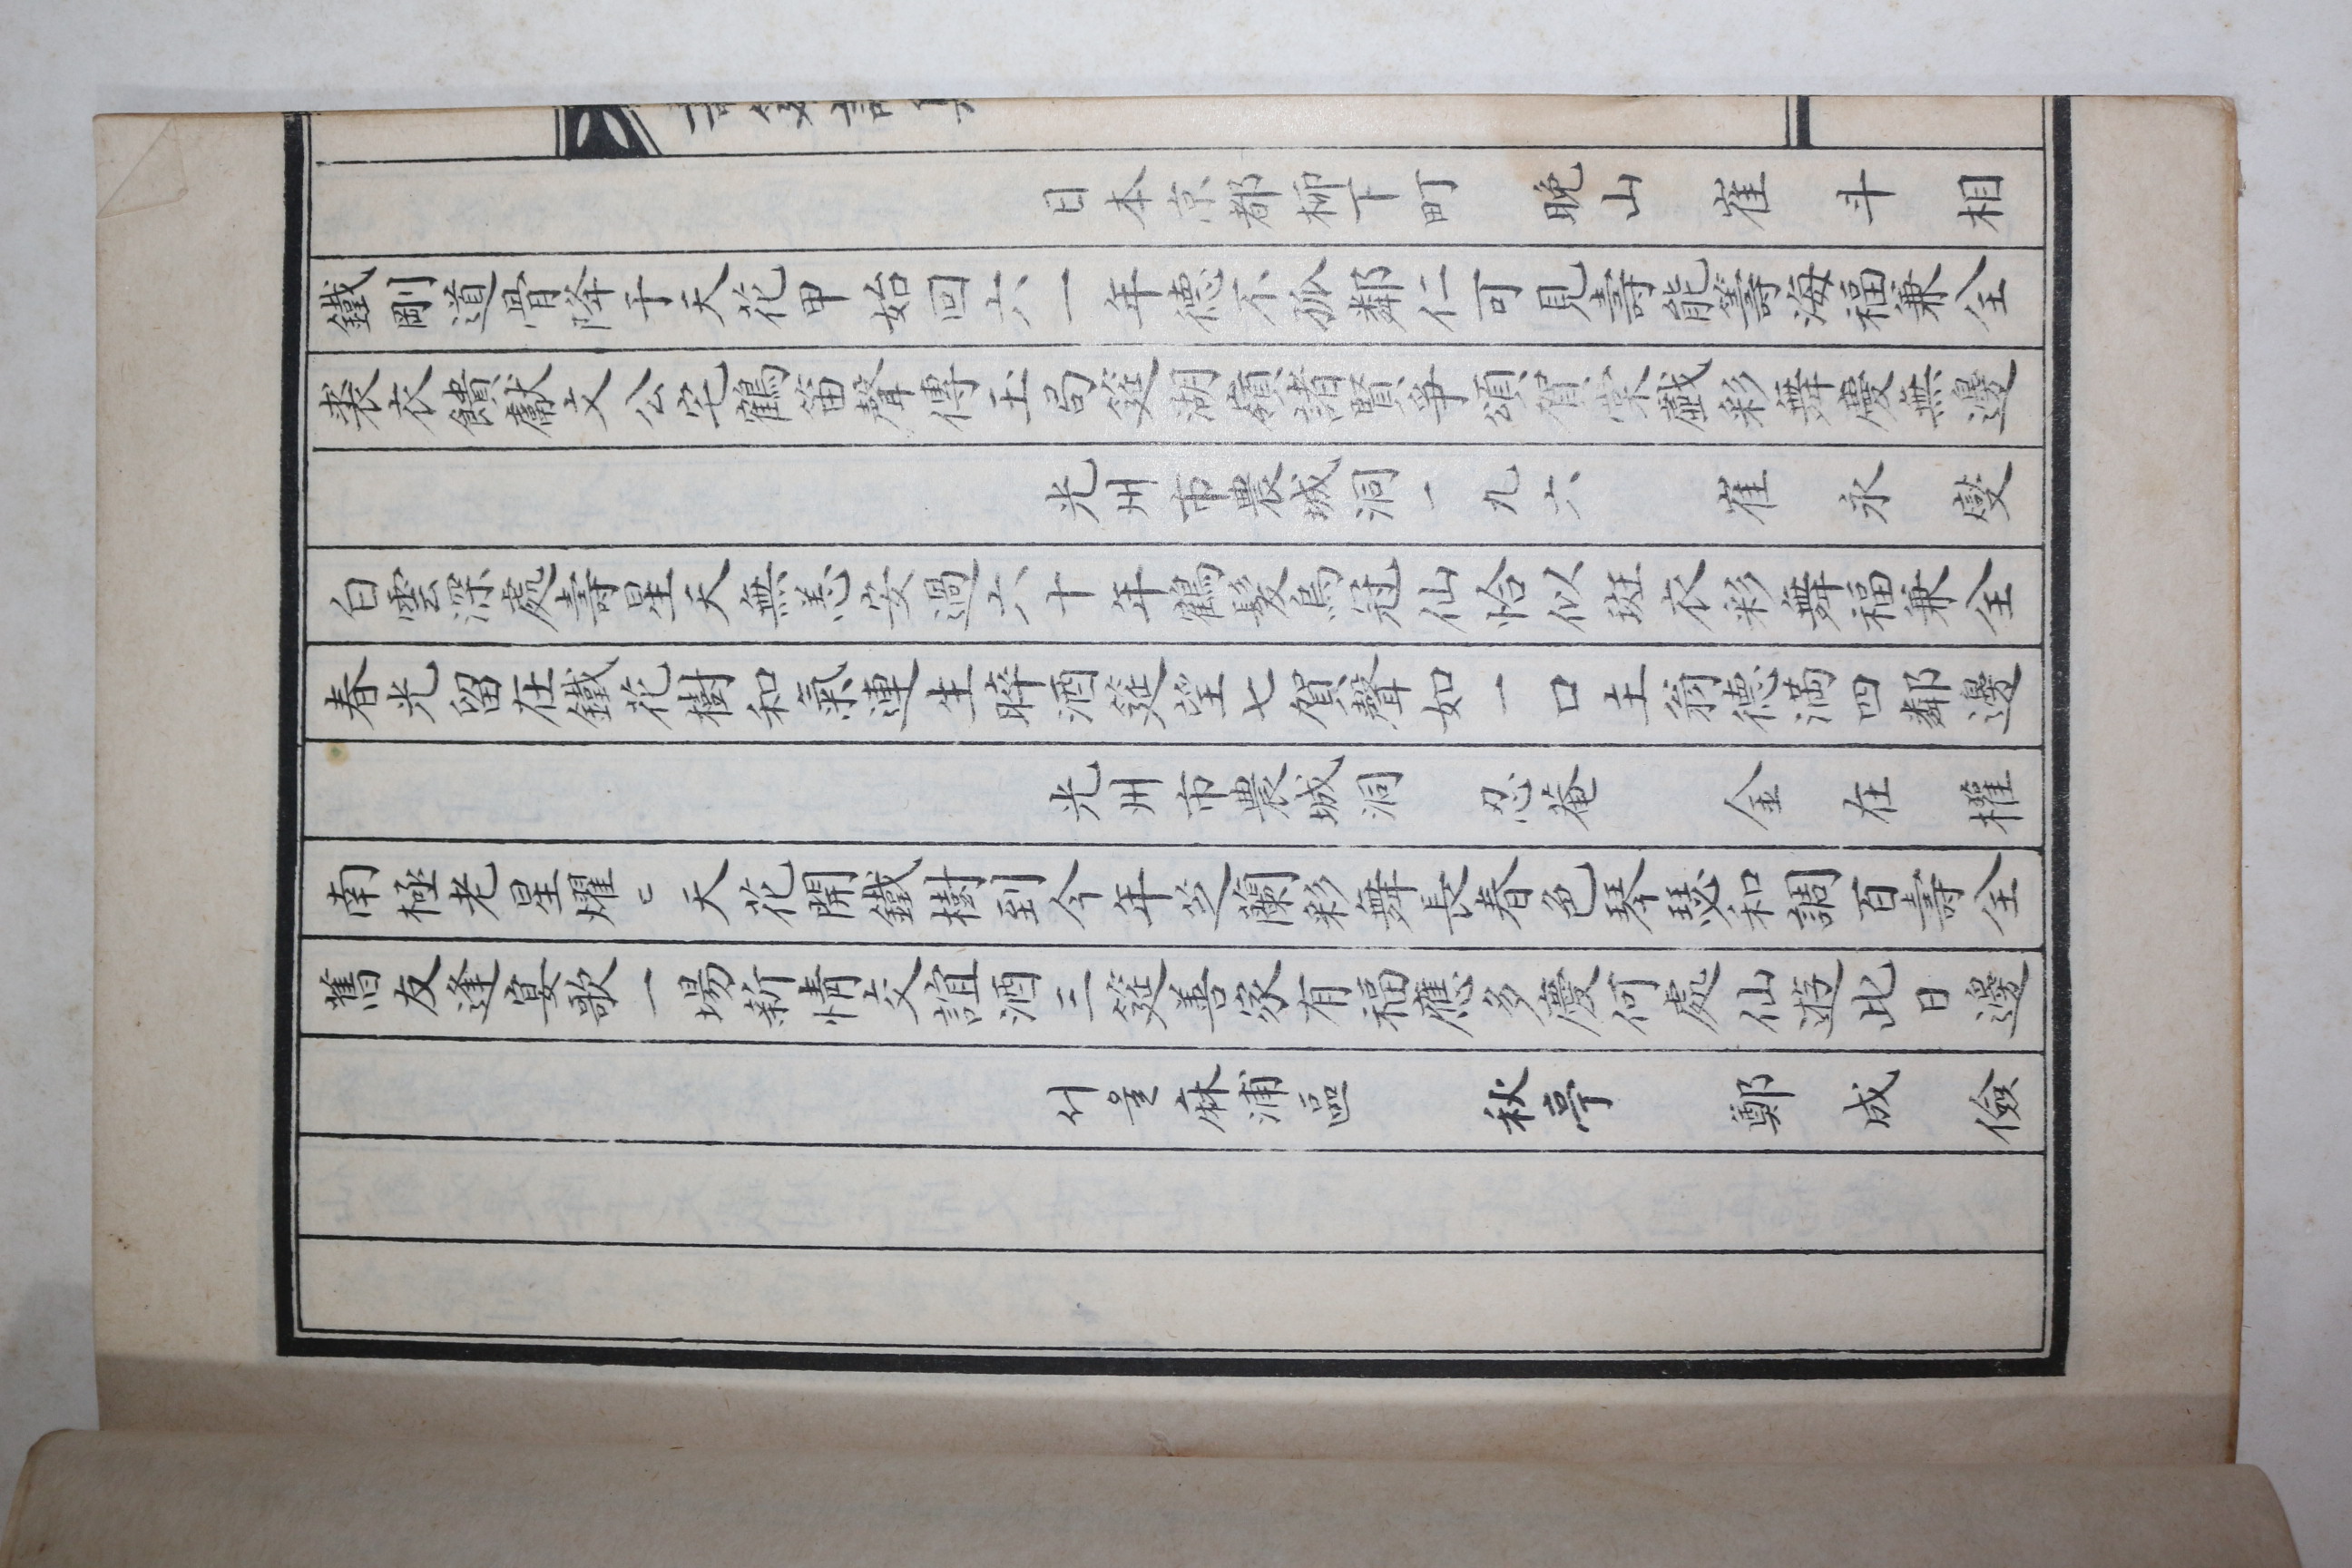 日本京都柳下町 晩山 崔斗相
鐵剛道骨降于天花甲始回六一年德不孤鄰仁可見壽能籌海福兼全
裘衣饋獻文公宅鶴笛聲傳玉局筵湖嶺諸賢爭頌賀棠戱彩舞慶無邊
光州市農城洞一九六 崔永燮
白雲深處壽星天無恙安過六十年鶴髮烏冠仙恰似斑衣彩舞福兼全
春光留在鐵花樹和氣連生晬酒筵望七賀聲如一口主翁德滿四鄰邊
光州市農城洞 忍菴 金在權
南極老星燿〻天花開鐵樹到今年芝蘭彩舞長春色琴瑟和調百壽全
舊友逢宴歌一場新情交誼酒三筵善家有福應多慶何處仙遊此日邊
서울麻浦區 秋亭 鄭成儉